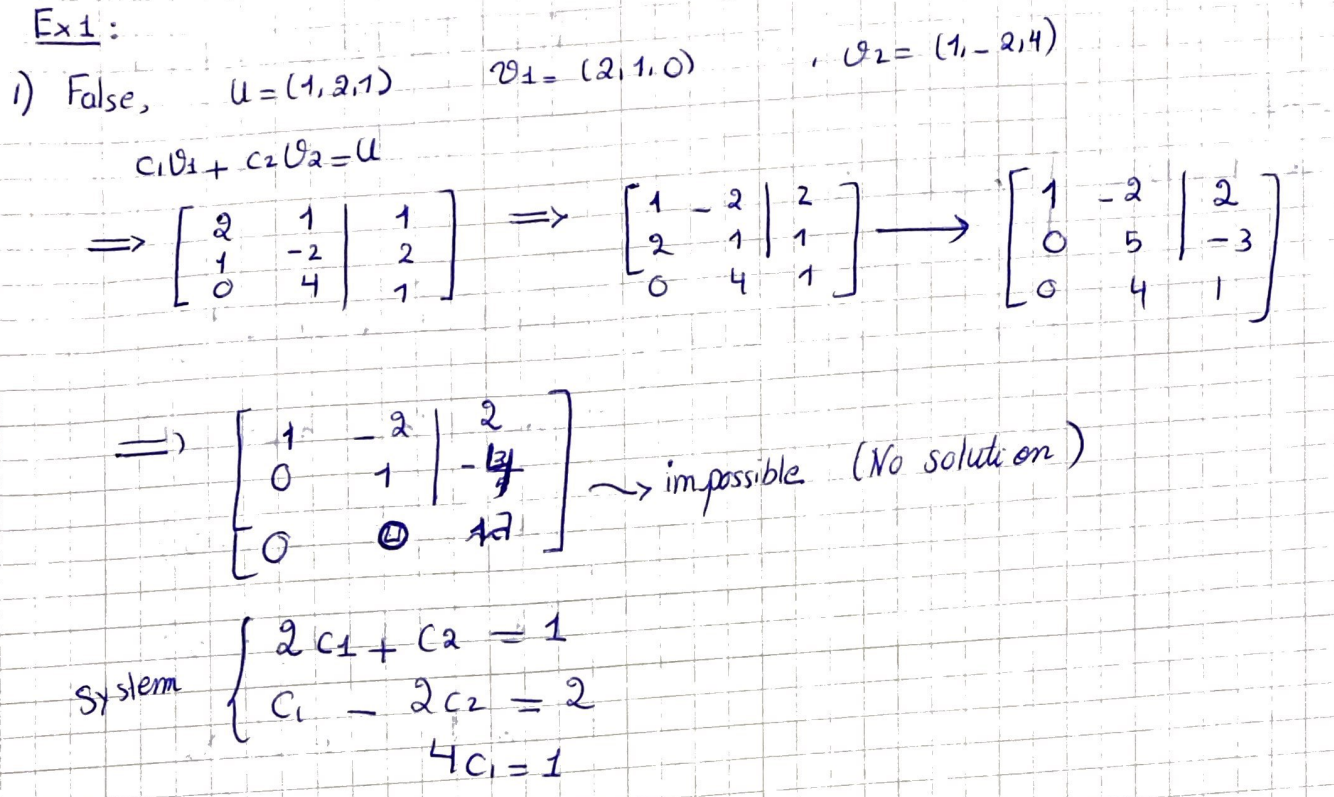 Ex1:
1) False, u = (1,2,1) v1 = (2,1,0) , v2 = (1,-2,4)
c1v1 + c2v2 = u
=> [ 2 1 | 1 ] => [ 1 -2 | 2 ] → [ 1 -2 | 2 ]
[ 1 -2 | 2 ] [ 2 1 | 1 ] [ 0 5 | -3 ]
[ 0 4 | 1 ] [ 0 4 1 ] [ 0 4 1 ]
=> [ 1 -2 | 2 ]
[ 0 1 | - ] ⇝ impossible (No solution)
[ 0 ]
System { 2c1 + c2 = 1
c1 - 2c2 = 2
4c1 = 1